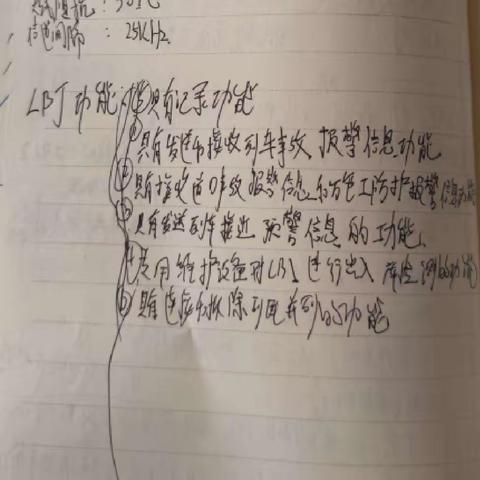 天线阻抗：50Ω
信道间隔：25KHz
LBJ功能 具有记录功能
①具有发送和接收列车事故报警信息功能
②具有接收道口事故报警信息和施工防护报警信息功能
③具有发送列车接近预警信息的功能
使用维护设备对LBJ进行出入库检测的功能
具有 功能